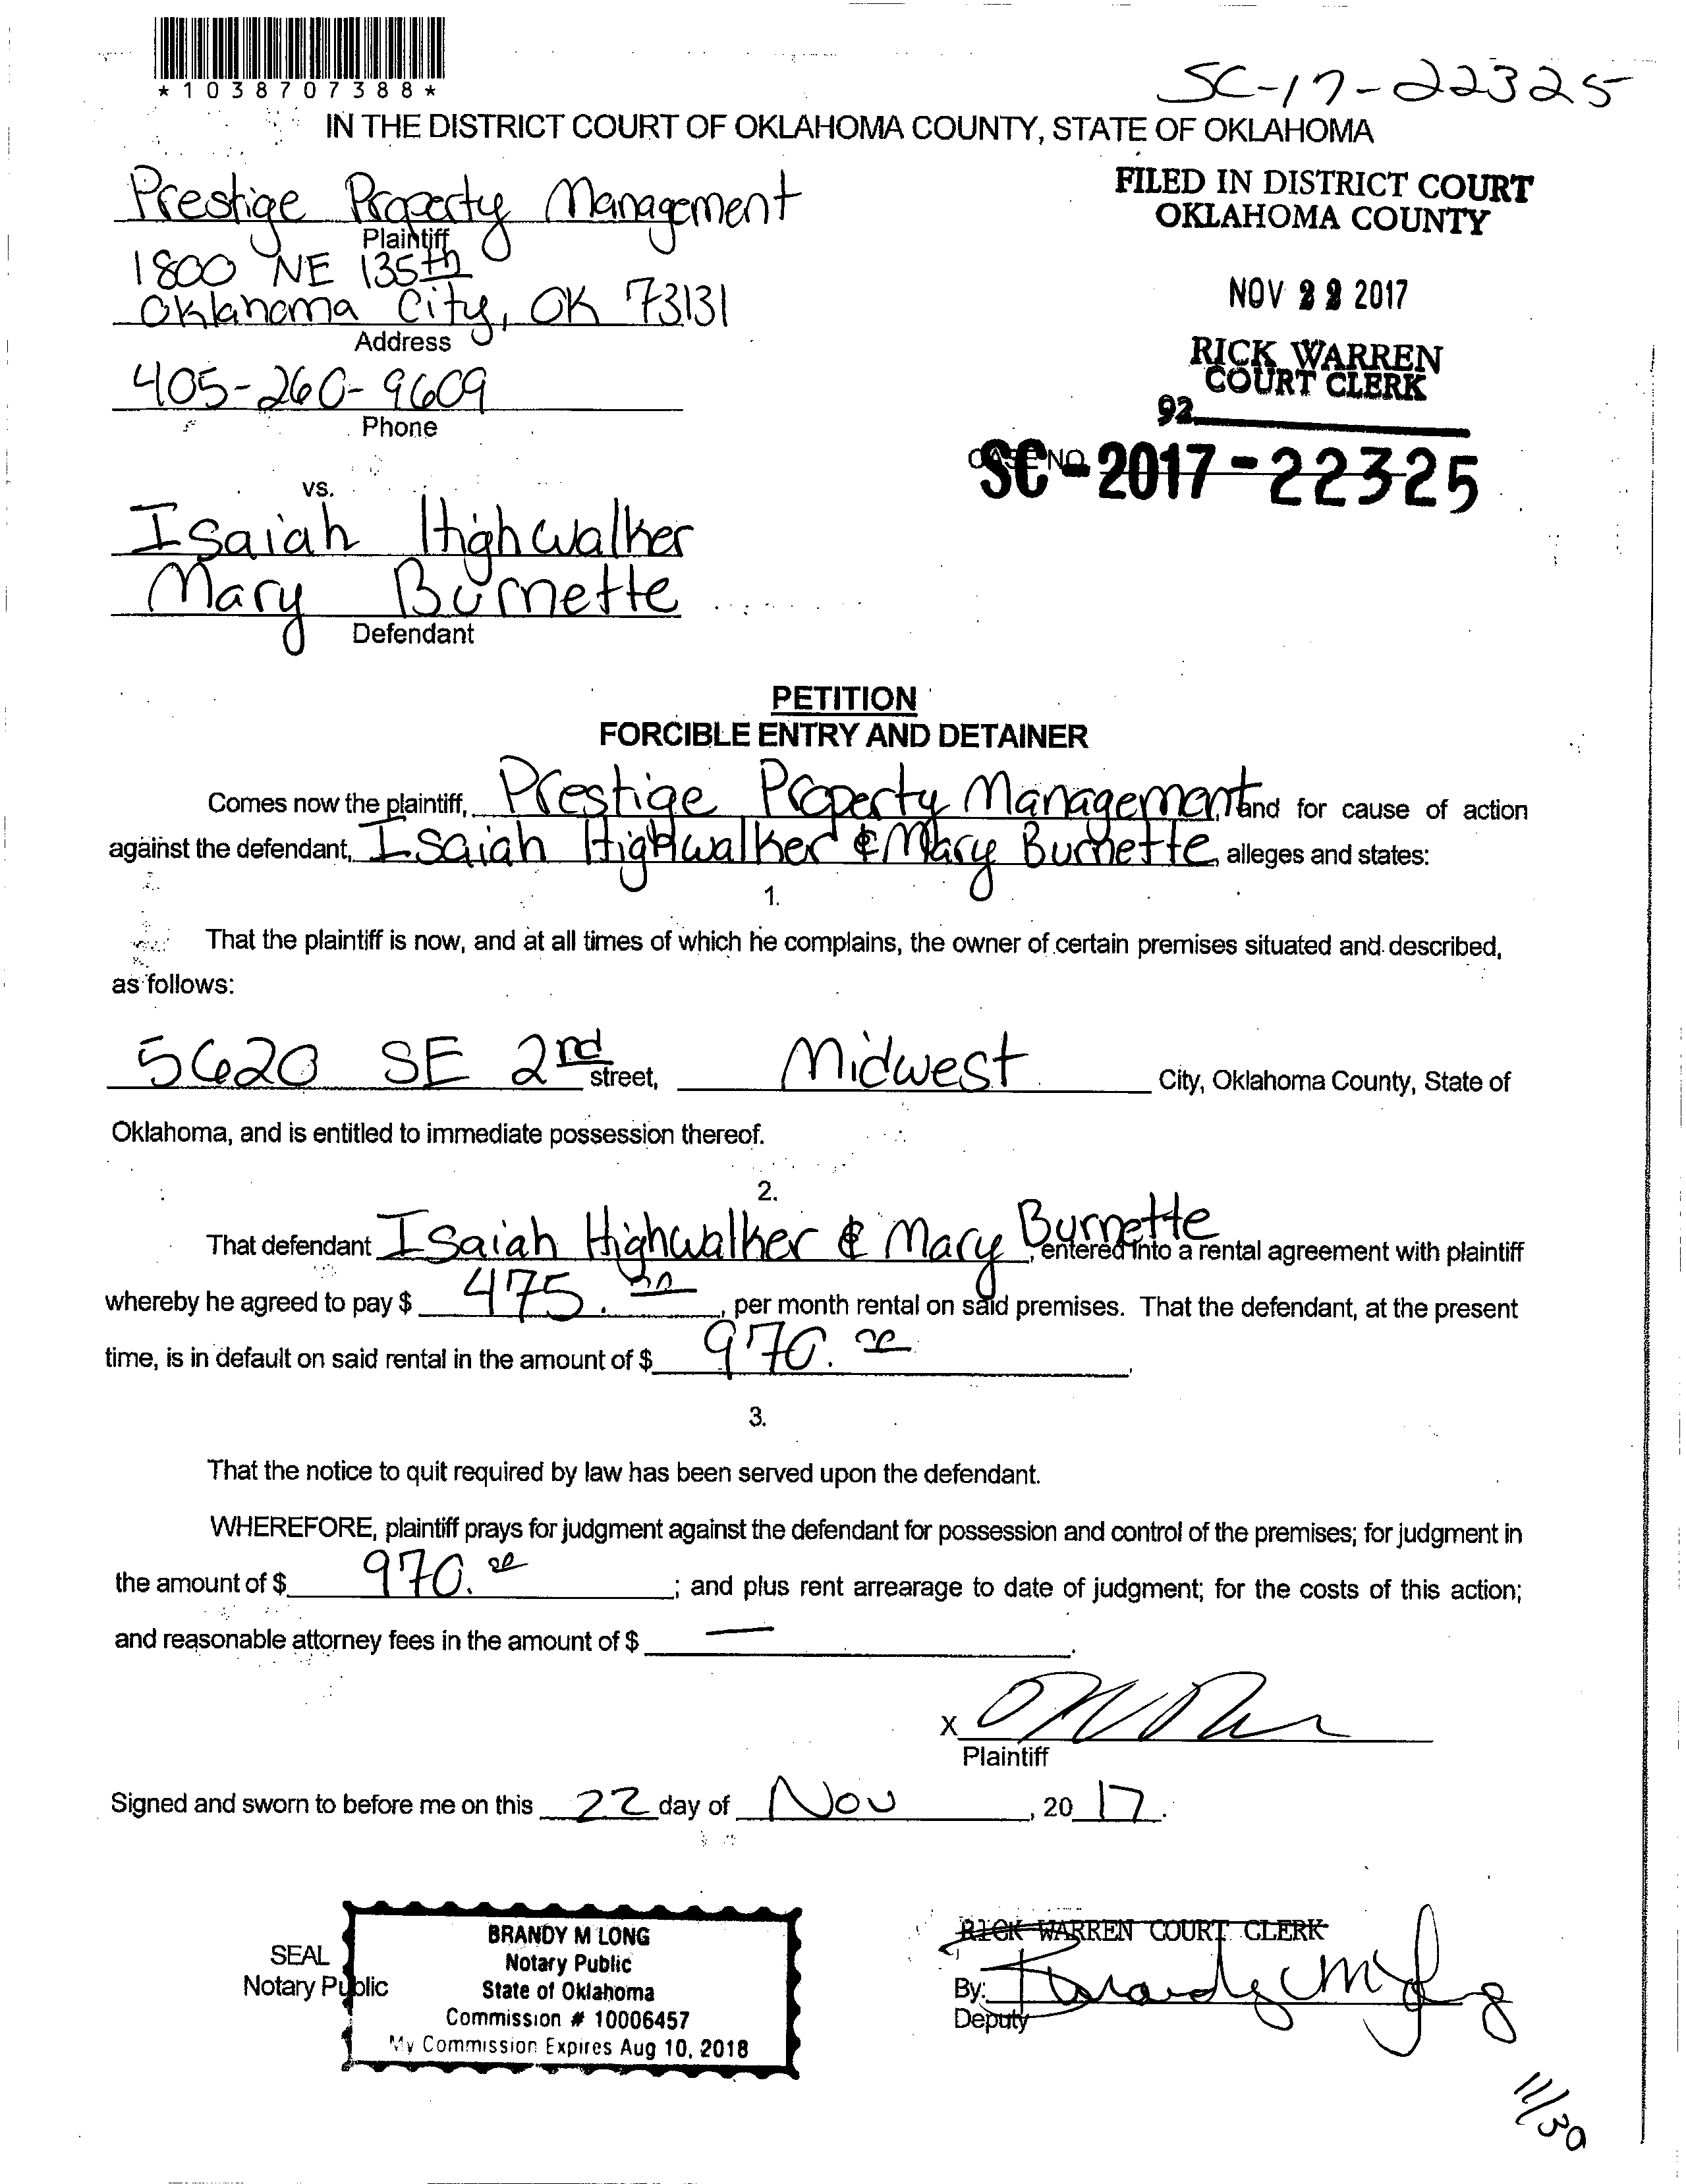 *1038707388*
SC-17-22325
IN THE DISTRICT COURT OF OKLAHOMA COUNTY, STATE OF OKLAHOMA
Prestige Property Management
Plaintiff
1800 NE 135th
Oklahoma City, OK 73131
Address
405-260-9609
Phone
FILED IN DISTRICT COURT
OKLAHOMA COUNTY
NOV 22 2017
RICK WARREN
COURT CLERK
92
CASE NO.
SC-2017-22325
vs.
Isaiah Highwalker
Mary Burnette
Defendant
PETITION
FORCIBLE ENTRY AND DETAINER
Comes now the plaintiff, Prestige Property Management, and for cause of action
against the defendant, Isaiah Highwalker & Mary Burnette, alleges and states:
1.
That the plaintiff is now, and at all times of which he complains, the owner of certain premises situated and described,
as follows:
5620 SE 2nd street, Midwest City, Oklahoma County, State of
Oklahoma, and is entitled to immediate possession thereof.
2.
That defendant Isaiah Highwalker & Mary Burnette, entered into a rental agreement with plaintiff
whereby he agreed to pay $ 475.00, per month rental on said premises. That the defendant, at the present
time, is in default on said rental in the amount of $ 970.00.
3.
That the notice to quit required by law has been served upon the defendant.
WHEREFORE, plaintiff prays for judgment against the defendant for possession and control of the premises; for judgment in
the amount of $ 970.00; and plus rent arrearage to date of judgment; for the costs of this action;
and reasonable attorney fees in the amount of $ —.
X
Plaintiff
Signed and sworn to before me on this 22 day of Nov, 2017.
SEAL
Notary Public
BRANDY M LONG
Notary Public
State of Oklahoma
Commission # 10006457
My Commission Expires Aug 10, 2018
RICK WARREN COURT CLERK
By: Brandy M Long
Deputy
11/30